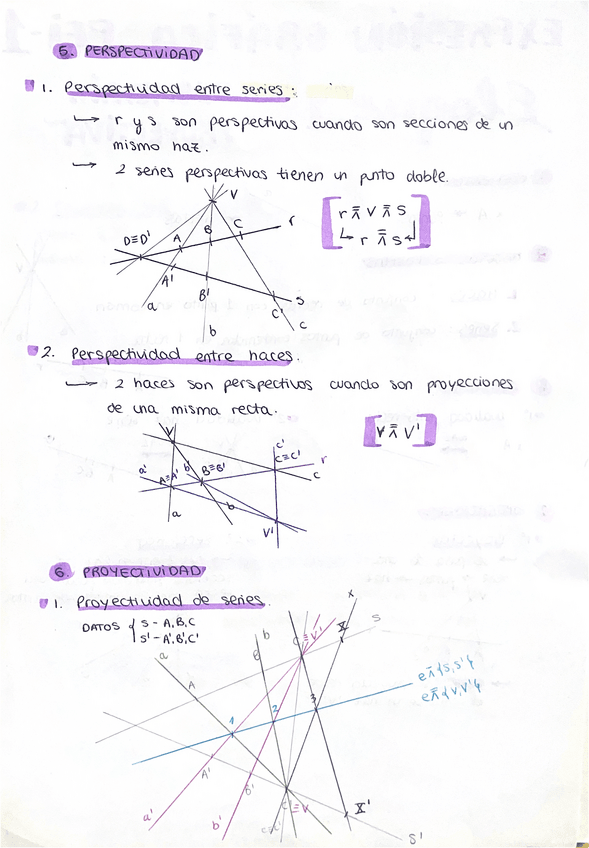 5. PERSPECTIVIDAD
1. Perspectividad entre series:
→ r y s son perspectivas cuando son secciones de un
mismo haz.
→ 2 series perspectivas tienen un punto doble.
V
r ⩞ V ⩞ s
↳ r ⩞ s ↲
D≡D' A B C r
A' B' C' s
a b c
2. Perspectividad entre haces.
→ 2 haces son perspectivos cuando son proyecciones
de una misma recta.
V ⩞ V'
V
c'
a' A≡A' b' B≡B' C≡C' r
c
a b
V'
6. PROYECTIVIDAD
1. Proyectividad de series.
DATOS { s - A, B, C
s' - A', B', C'
a B b C≡V' X x s
A
e ⊼ {s, s'}
e ⊼ {V, V'}
1 2 3
A' B' C'≡V X'
a' b' c≡c' s'